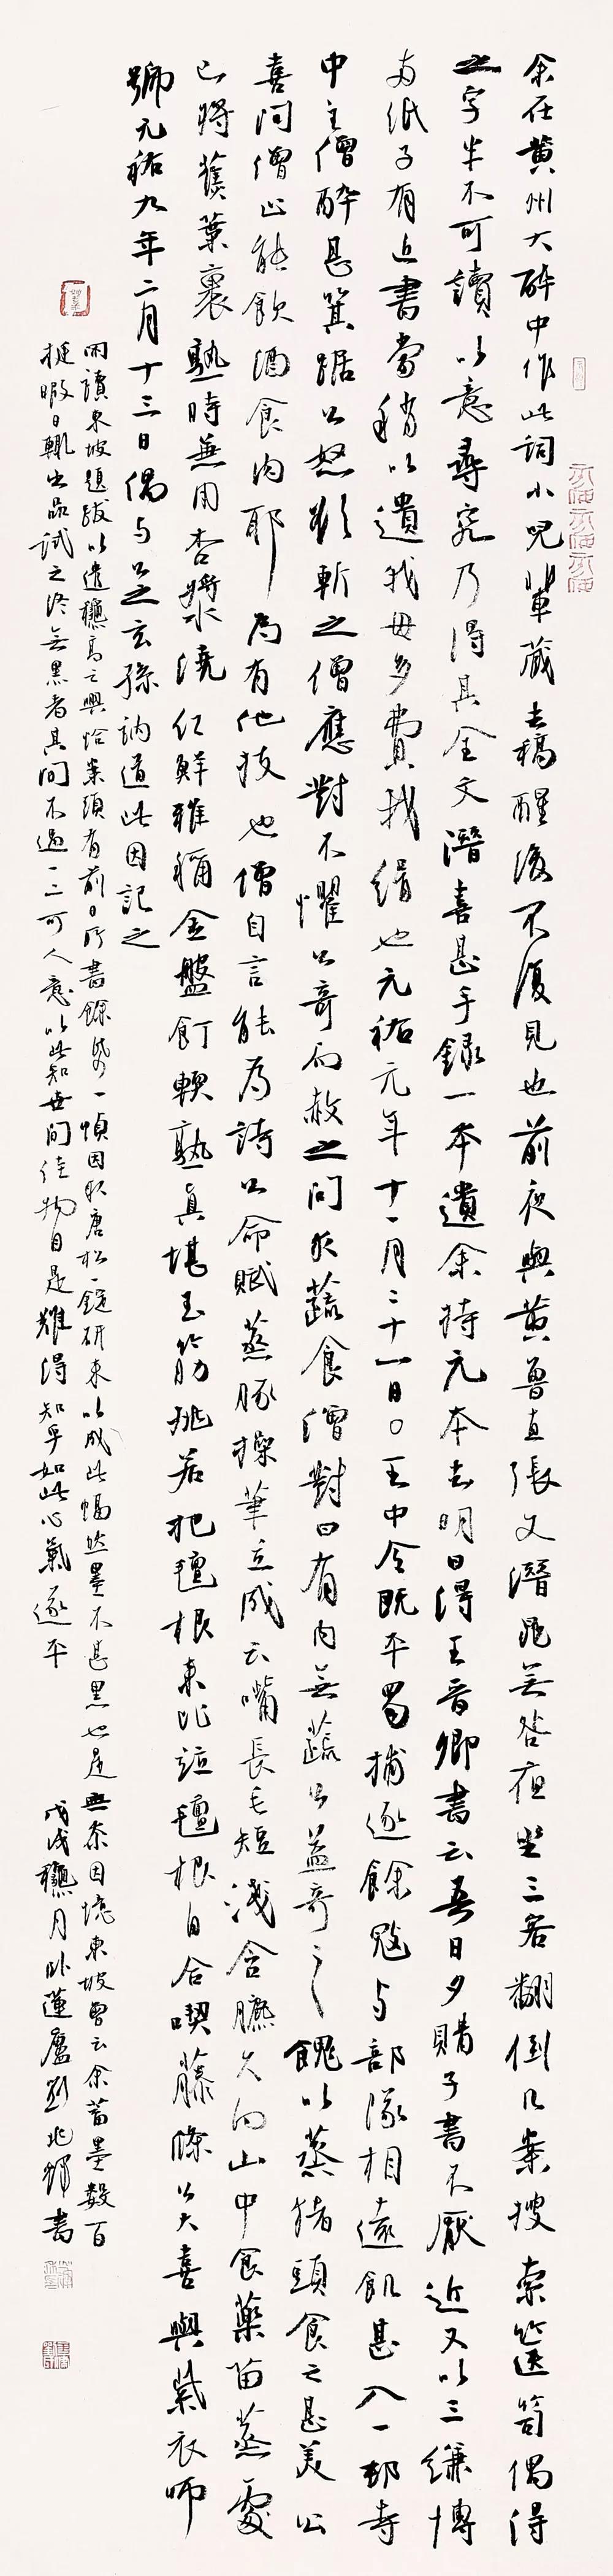 余在黃州大醉中作此詞小兒輩藏去稿醒後不復見也前夜與黃魯直張文潛晁无咎夜坐三客翻倒几案搜索篋笥偶得
之字半不可讀以意尋究乃得其全文潛喜甚手錄一本遺余持元本去明日得王晉卿書云吾日夕購子書不厭近又以三縑博
兩紙子有近書當稍以遺我毋多費我絹也元祐元年十一月二十一日○王中令既平蜀捕逐餘寇与部隊相遠飢甚入一邨寺
中主僧醉甚箕踞公怒欲斬之僧應對不懼公奇而赦之問求蔬食僧對曰有肉無蔬公益奇之餽以蒸豬頭食之甚美公
喜問僧止能飲酒食肉耶為有他技也僧自言能為詩公命賦蒸豚操筆立成云嘴長毛短淺含膘久向山中食藥苗蒸處
已將蕉葉裹熟時兼用杏漿澆紅鮮雅稱金盤飣軟熟真堪玉筯挑若把氊根來比竝氊根自合喫藤條公大喜與紫衣師
號元祐九年二月十三日偶与公之玄孫訥道此因記之
閑讀東坡題跋以遣穐高之興恰案頭有前日所書餘紙一幀因取唐松一錠研來以成此幅然墨不甚黑也是無奈因憶東坡曾云余蓄墨數百
挺暇日輒出品試之終無黑者其間不過一二可人意以此知世間佳物自是難得知乎如此心氣遂平
戊戌穐月臥蓮廬劉兆彬書